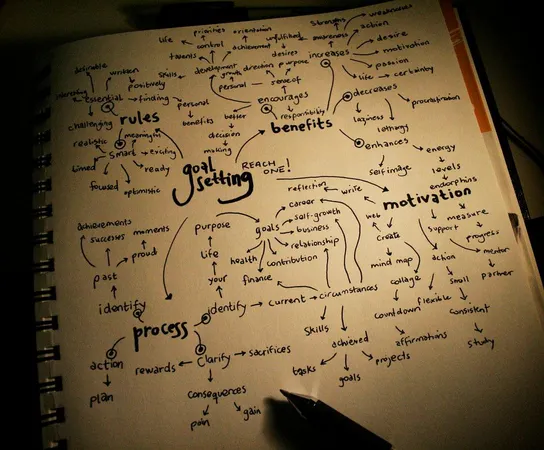 priorities
orientation
strengths
weaknesses
life
control
unfulfilled
awareness
action
talents
achievement
desires
desire
definable
written
skills
development
direction
purpose
increases
motivation
growth
passion
positively
personal
sense of
life
certainty
essential
finding
personal
encourages
decreases
procrastination
challenging
rules
benefits
better
responsibility
laziness
realistic
meaningful
decision
benefits
lethargy
smart
exciting
making
enhances
energy
timed
ready
goal
setting
REACH
ONE!
self image
levels
focused
optimistic
reflection
write
endorphins
career
motivation
achievements
purpose
self-growth
web
measure
successes
moments
goals
business
support
create
progress
proud
relationship
life
health
contribution
action
mentor
past
mind map
your
finance
collage
small
partner
identify
identify
current
circumstances
flexible
process
countdown
consistent
skills
action
clarify
sacrifices
achieved
affirmations
study
rewards
projects
plan
tasks
consequences
goals
pain
gain